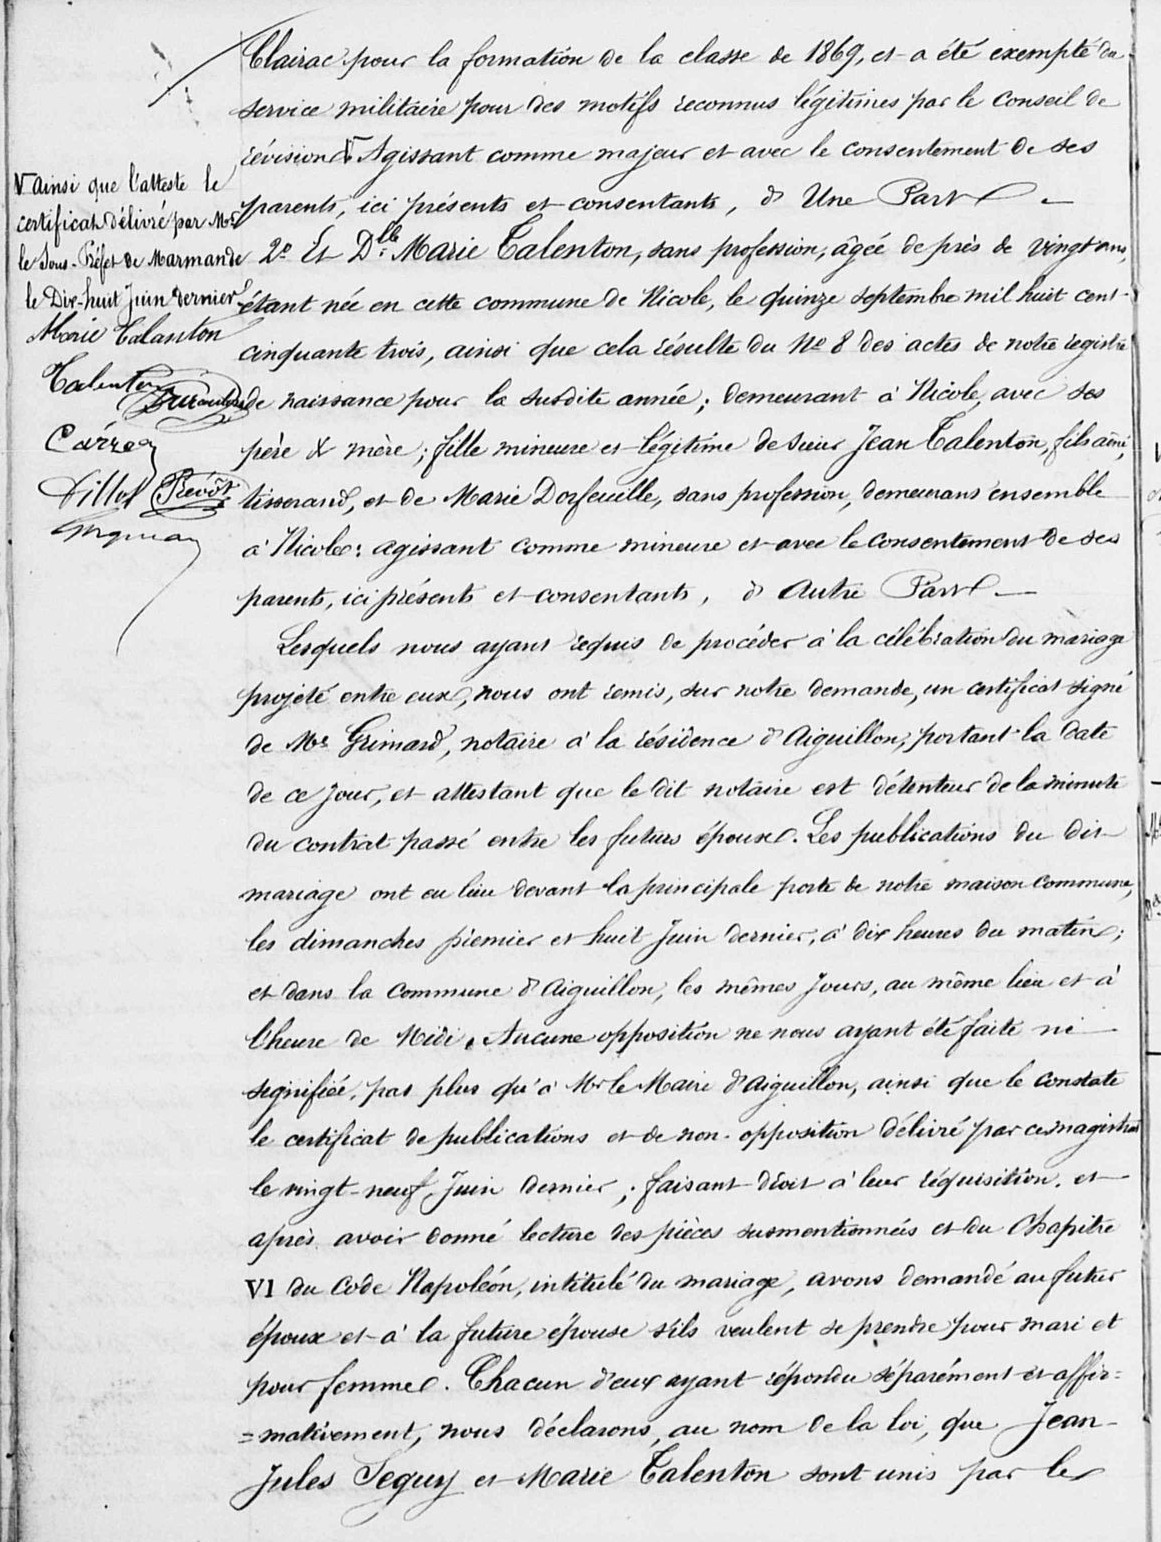 Clairac pour la formation de la classe de 1869, et a été exempté du
service militaire pour des motifs reconnus légitimes par le Conseil de
révision Agissant comme majeur et avec le consentement de ses
parents, ici présents et consentants, d'Une Part
2º Et Dlle Marie Talenton, sans profession, âgée de près de vingt ans,
étant née en cette commune de Nicole, le quinze septembre mil huit cent
cinquante trois, ainsi que cela résulte du Nº 8 des actes de notre registre
de naissance pour la susdite année; demeurant à Nicole, avec ses
père & mère; fille mineure et légitime de sieur Jean Talenton, fils aîné,
tisserand, et de Marie Dorfeuille, sans profession, demeurans ensemble
à Nicole: agissant comme mineure et avec le consentement de ses
parents, ici présents et consentants, d'Autre Part
Lesquels nous ayant requis de procéder à la célébration du mariage
projeté entre eux, nous ont remis, sur notre demande, un certificat signé
de Me Grimard, notaire à la résidence d'Aiguillon, portant la date
de ce jour, et attestant que le dit notaire est détenteur de la minute
du contrat passé entre les futurs époux. Les publications du dit
mariage ont eu lieu devant la principale porte de notre maison commune,
les dimanches premier et huit Juin dernier, à dix heures du matin;
et dans la commune d'Aiguillon, les mêmes jours, au même lieu et à
l'heure de Midi. Aucune opposition ne nous ayant été faite ni
signifiée, pas plus qu'à Mr le Maire d'Aiguillon, ainsi que le constate
le certificat de publications et de non-opposition délivré par ce magistrat
le vingt-neuf Juin dernier; faisant droit à leur réquisition, et
après avoir donné lecture des pièces susmentionnées et du Chapitre
VI du Code Napoléon, intitulé du mariage, avons demandé au futur
époux et à la future épouse s'ils veulent se prendre pour mari et
pour femme. Chacun d'eux ayant répondu séparément et affir=
=mativement, nous déclarons, au nom de la loi, que Jean
Jules Seguy et Marie Talenton sont unis par le
ainsi que l'atteste le
certificat délivré par Mr
le Sous-Préfet de Marmande
le Dix-huit Juin dernier
Marie Talanton
Talenton
Prévôt